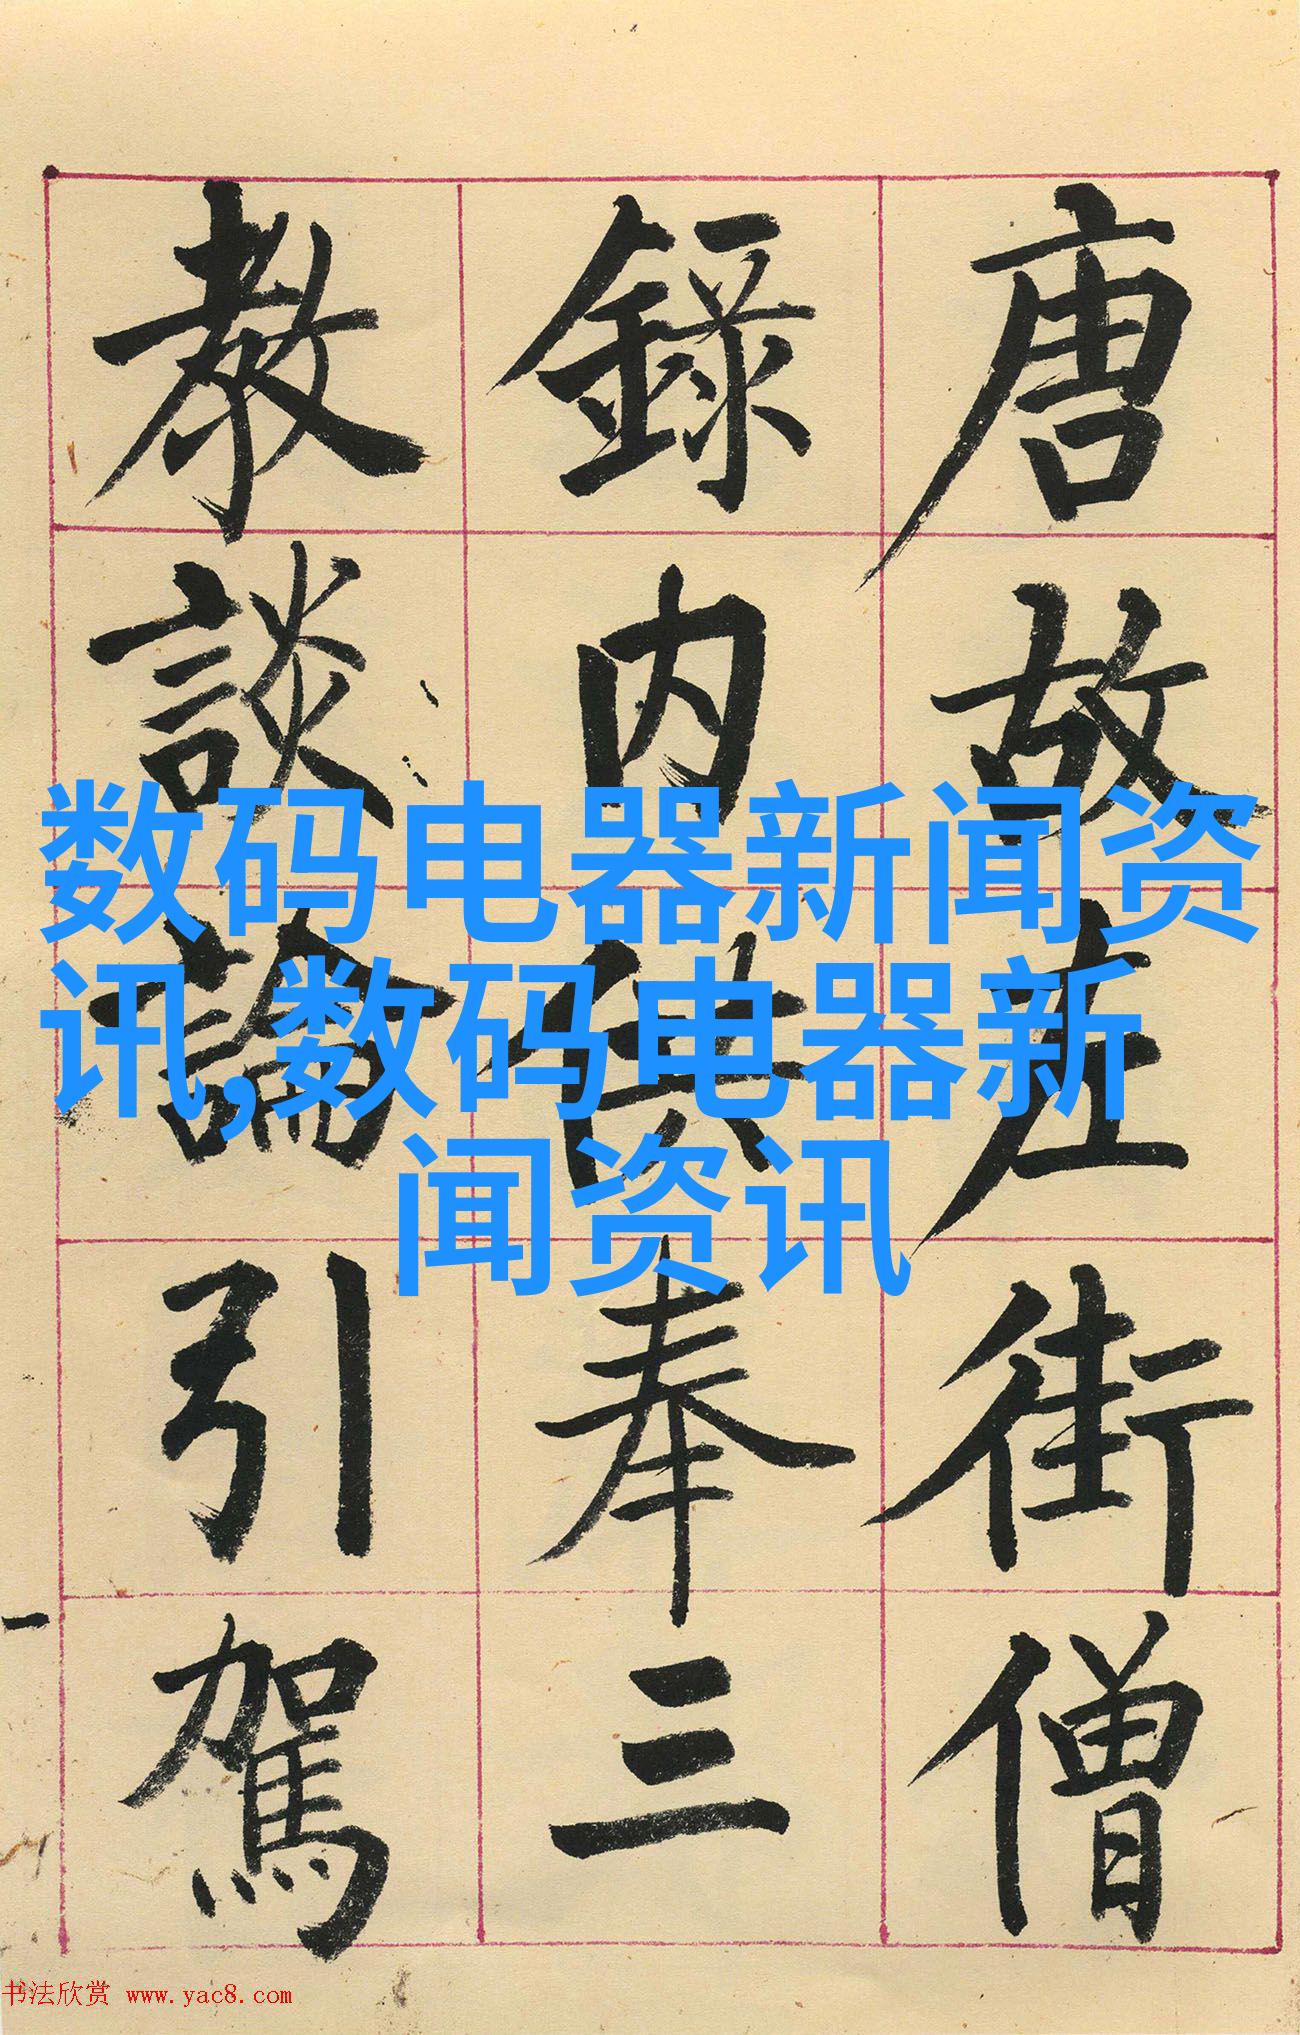 唐故左街僧
錄内供奉三
教談論引駕
数码电器新闻资
讯,数码电器新
闻资讯
书法欣赏 www.yac8.com